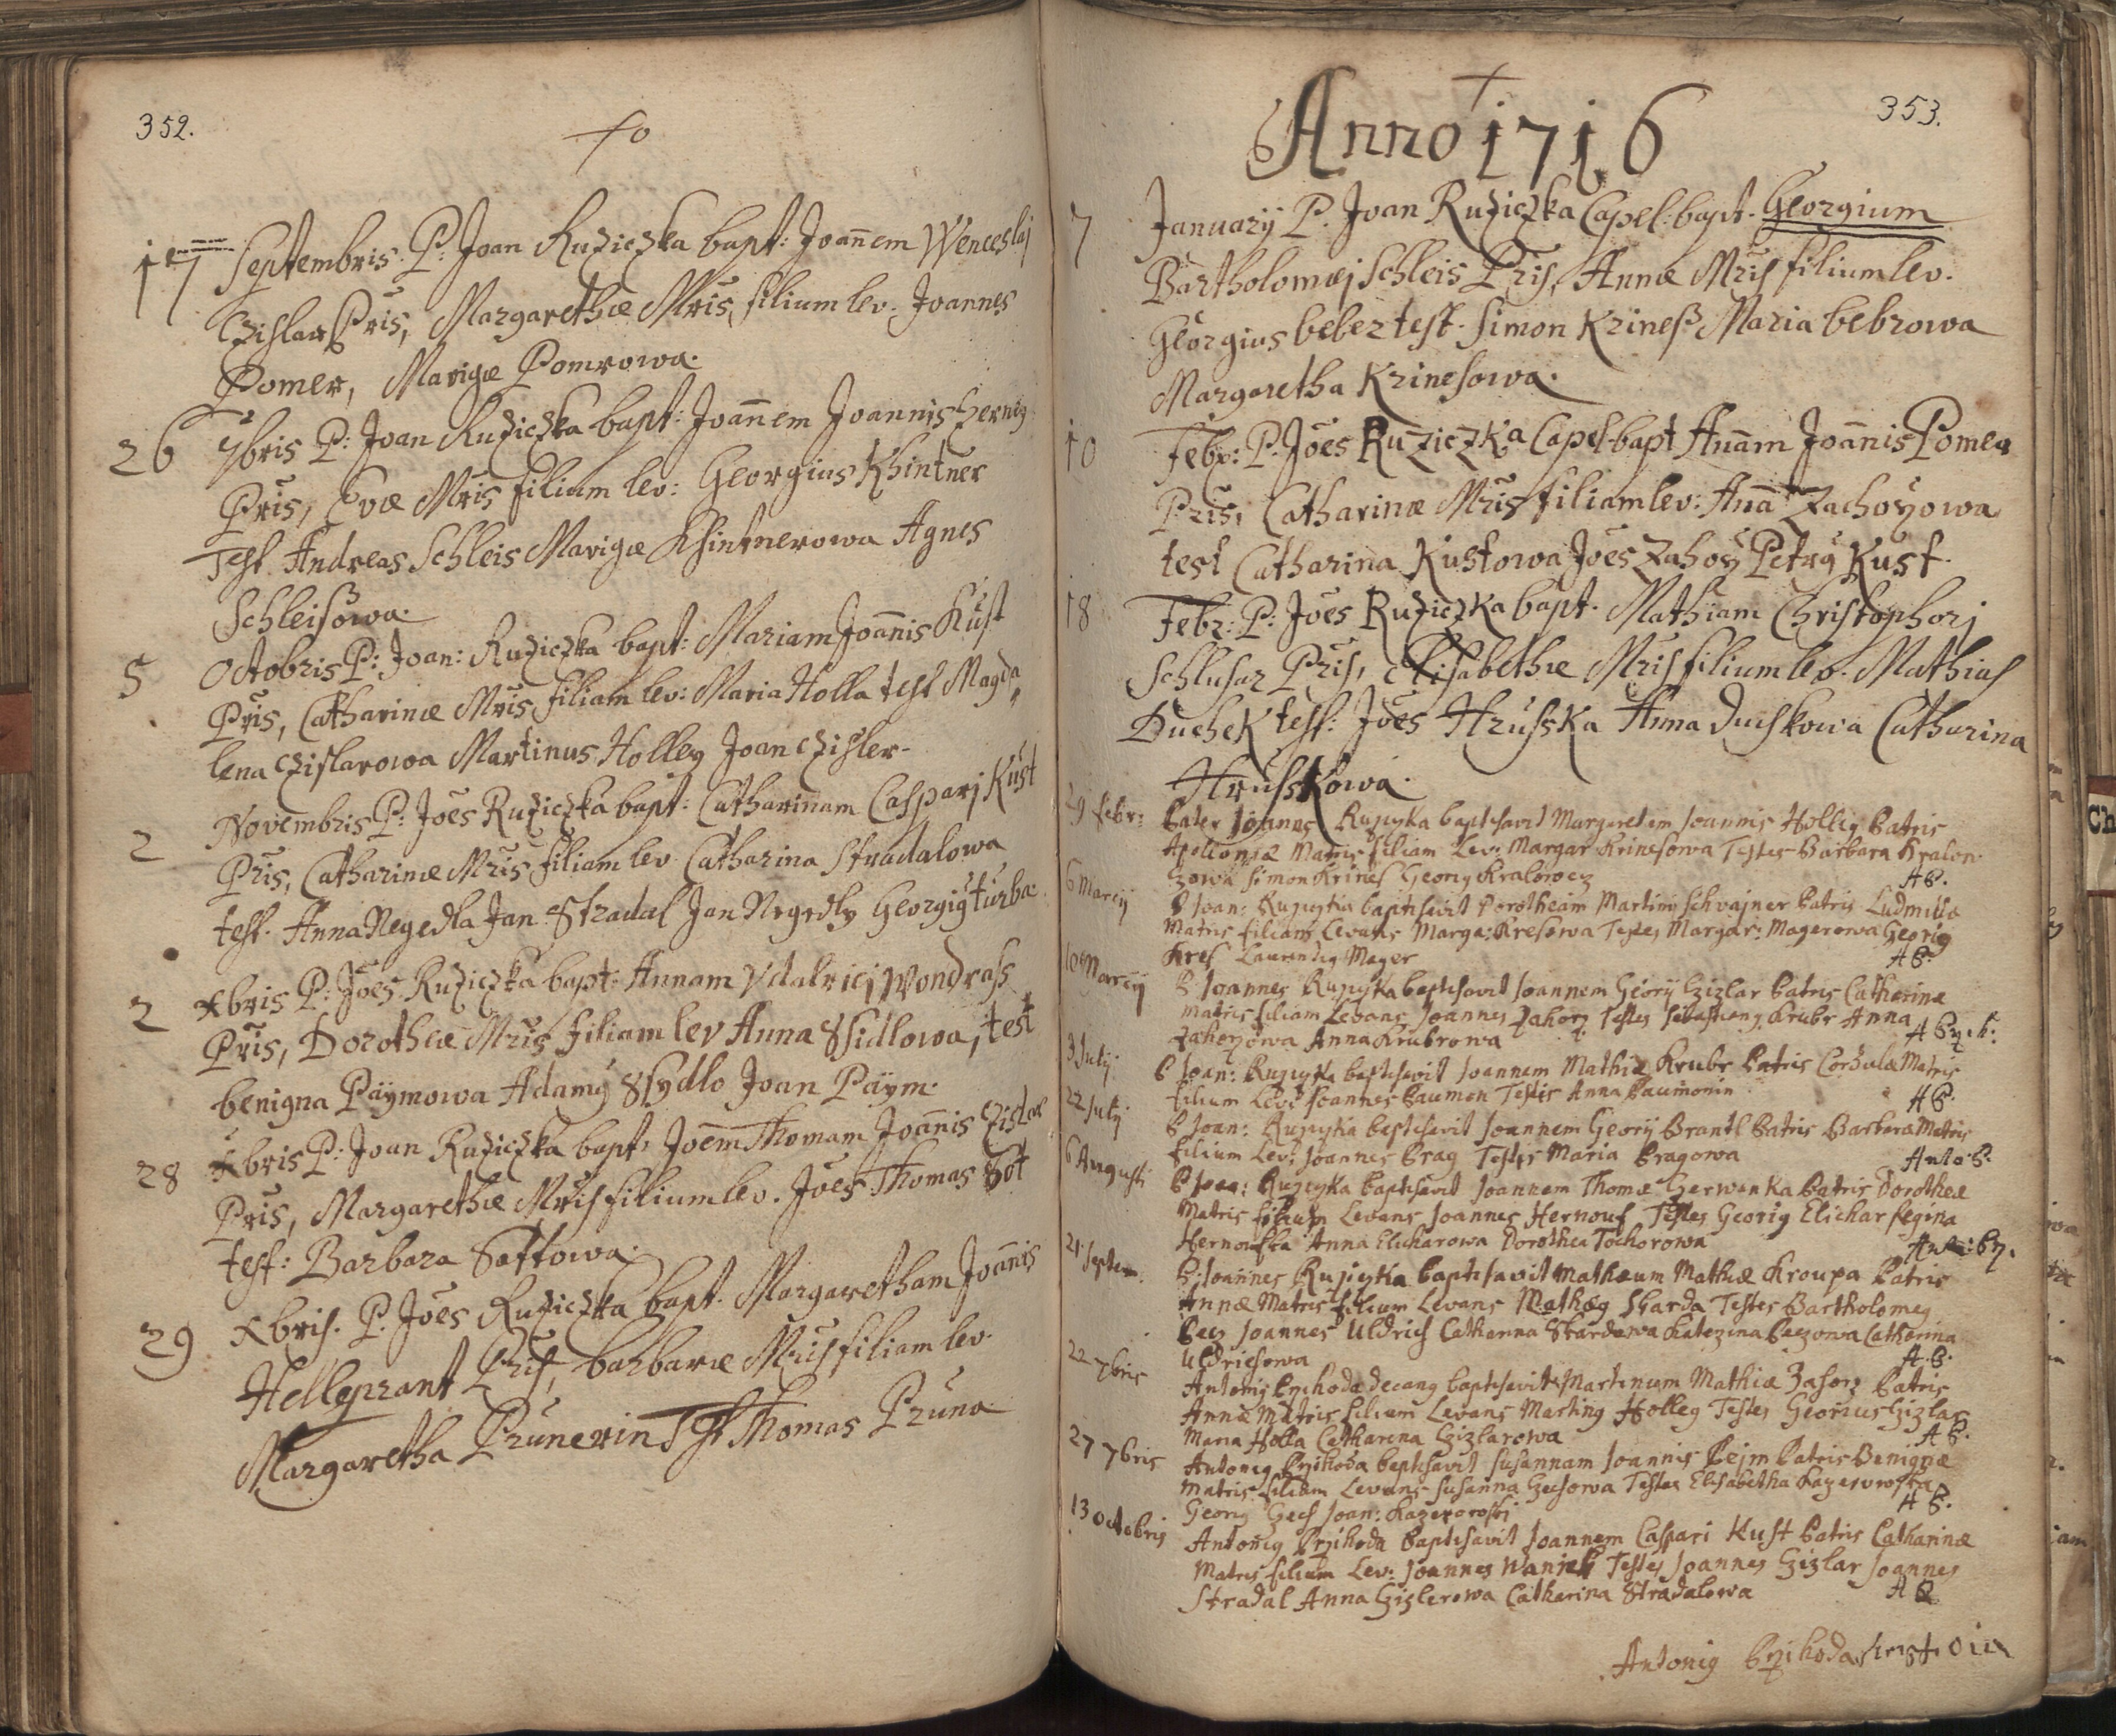 352.
17 Septembris. P: Joan Ruziczka bapt: Joañem Wenceslaj
Czislar Pris, Margarethæ Mris filium lev. Joannes
Pomer, Marigæ Pomrowa.
26 7bris P: Joan Ruziczka bapt: Joañem Joannis
Pris, Evæ Mris filium lev: Georgius Khintner
Test. Andreas Schleis Marigæ Khintnerowa Agnes
Schleisowa.
5 Octobris P: Joan: Ruziczka bapt: Mariam Joañis Kust
Pris, Catharinæ Mris filiam lev: Maria Holla test Magda„
lena Czislarowa Martinus Holley Joan Czisler.
2 Novembris P: Joes Ruziczka bapt: Catharinam Casparj Kust
Pris, Catharinæ Mris filiam lev. Catharina Stradalowa
test. Anna Negedla Jan Stradal Jan Negedly Georgig Turba.
2 Xbris P: Joes Ruziczka bapt: Annam Vdalricj Wondrass
Pris, Dorotheæ Mris filiam lev Anna Ssidlowa, test
benigna Paymowa Adamg Ssydlo Joan Paym.
28 Xbris P: Joan Ruziczka bapt: Joem Thomam Joañis Czislar
Pris, Margarethæ Mris filium lev. Joes Thomas Sot
test: Barbara Sottowa.
29 Xbris. P: Joes Ruziczka bapt. Margaretham Joañis
Helleprant Pris, barbaræ Mris filiam lev.
Margaretha Prunerin Test Thomas Pruna
353.
Anno 1716
7 Januarij P. Joan Ruziczka Capel: bapt. Georgium
Bartholomæj Schleis Pris, Annæ Mris filium lev.
Georgius beber test. Simon Krineß Maria bebrowa
Margaretha Krinesowa.
10 Febr: P: Joes Ruziczka Capel. bapt Anam Joañis Pomer
Pris, Catharinæ Mris filiam lev: Ana Zachoyowa
test Catharina Kustowa Joes Zahoy Petrg Kust.
18 Febr: P: Joes Ruziczka bapt. Mathiam Christophorj
Schlusar Pris, Elisabethæ Mris filium lev. Mathias
Duchek test: Joes Hrusska Anna Duskowa Catharina
Hrusskowa.
29 febr: Pater Joannes Ruzyzka baptisavit Margaretam Joannis Holleg Patris
Apolloniæ Matris filiam Lev: Margar Krinesowa Testes Barbara Kralow
zowa Simon Krines Georg Kralowecz A P.
6 Marcij P Joan: Ruzyzka baptisavit Dorotheam Martini Schvajner Patris Ludmillæ
Matris filiam Levans Marga: Kresowa Testes Margar: Magerowa Georig
Kres Laurentig Mager A P.
10 Marcij P: Joannes Ruzyzka baptisavit Joannem Georij Czizlar Patris Catherinæ
Matris filium Levans Joannes Zahorz Testes Sebastiang Krubr Anna
Zahorzowa Anna Krubrowa
3 Julij P Joan: Ruzyzka baptisavit Joannem Mathiæ Krubr Patris Cordulæ Matris
filium Lev: Joannes Bauman Testis Anna Baumonin A P.
22 Julij P Joan: Ruzyzka baptisavit Joannem Georij Brantl Patris Barbaræ Matris
filium Lev: Joannes Prag Testis Maria Pragowa Anto: P.
6 Augusti P Joan: Ruzyzka baptisavit Joannem Thomæ Czerwenka Patris Dorotheæ
Matris filium Levans Joannes Hernouf Testes Georig Elichar Regina
Hernoufka Anna Elicharowa Dorothea Tochorowa
21 Septem. P: Joannes Ruzyzka baptisavit Mathæum Mathiæ Kroupa Patris
Annæ Matris filium Levans Mathæg Skarda Testes Bartholomeg
Pecz Joannes Uldrich Catharina Skardowa Katezina Peczowa Catherina
Uldrichowa A. P.
22 7bris Antonig Przihoda decang baptisavit Martinum Mathiæ Zahorz Patris
Annæ Matris filium Levans Marting Holleg Testes Georius Czizlar
Maria Holla Catharina Czizlarowa A P.
27 7bris Antonig Przihoda baptisavit Susannam Joannis Pejm Patris Benignæ
Matris filiam Levans Susanna Czechowa Testes Elisabetha
Georig Czech Joan: A P.
13 Octobris Antonig Przihoda baptisavit Joannem Caspari Kust Patris Catharinæ
Matris filium Lev: Joannes Waniek Testes Joannes Czizlar Joannes
Stradal Anna Czizlerowa Catharina Stradalowa A P
Antonig Przihoda